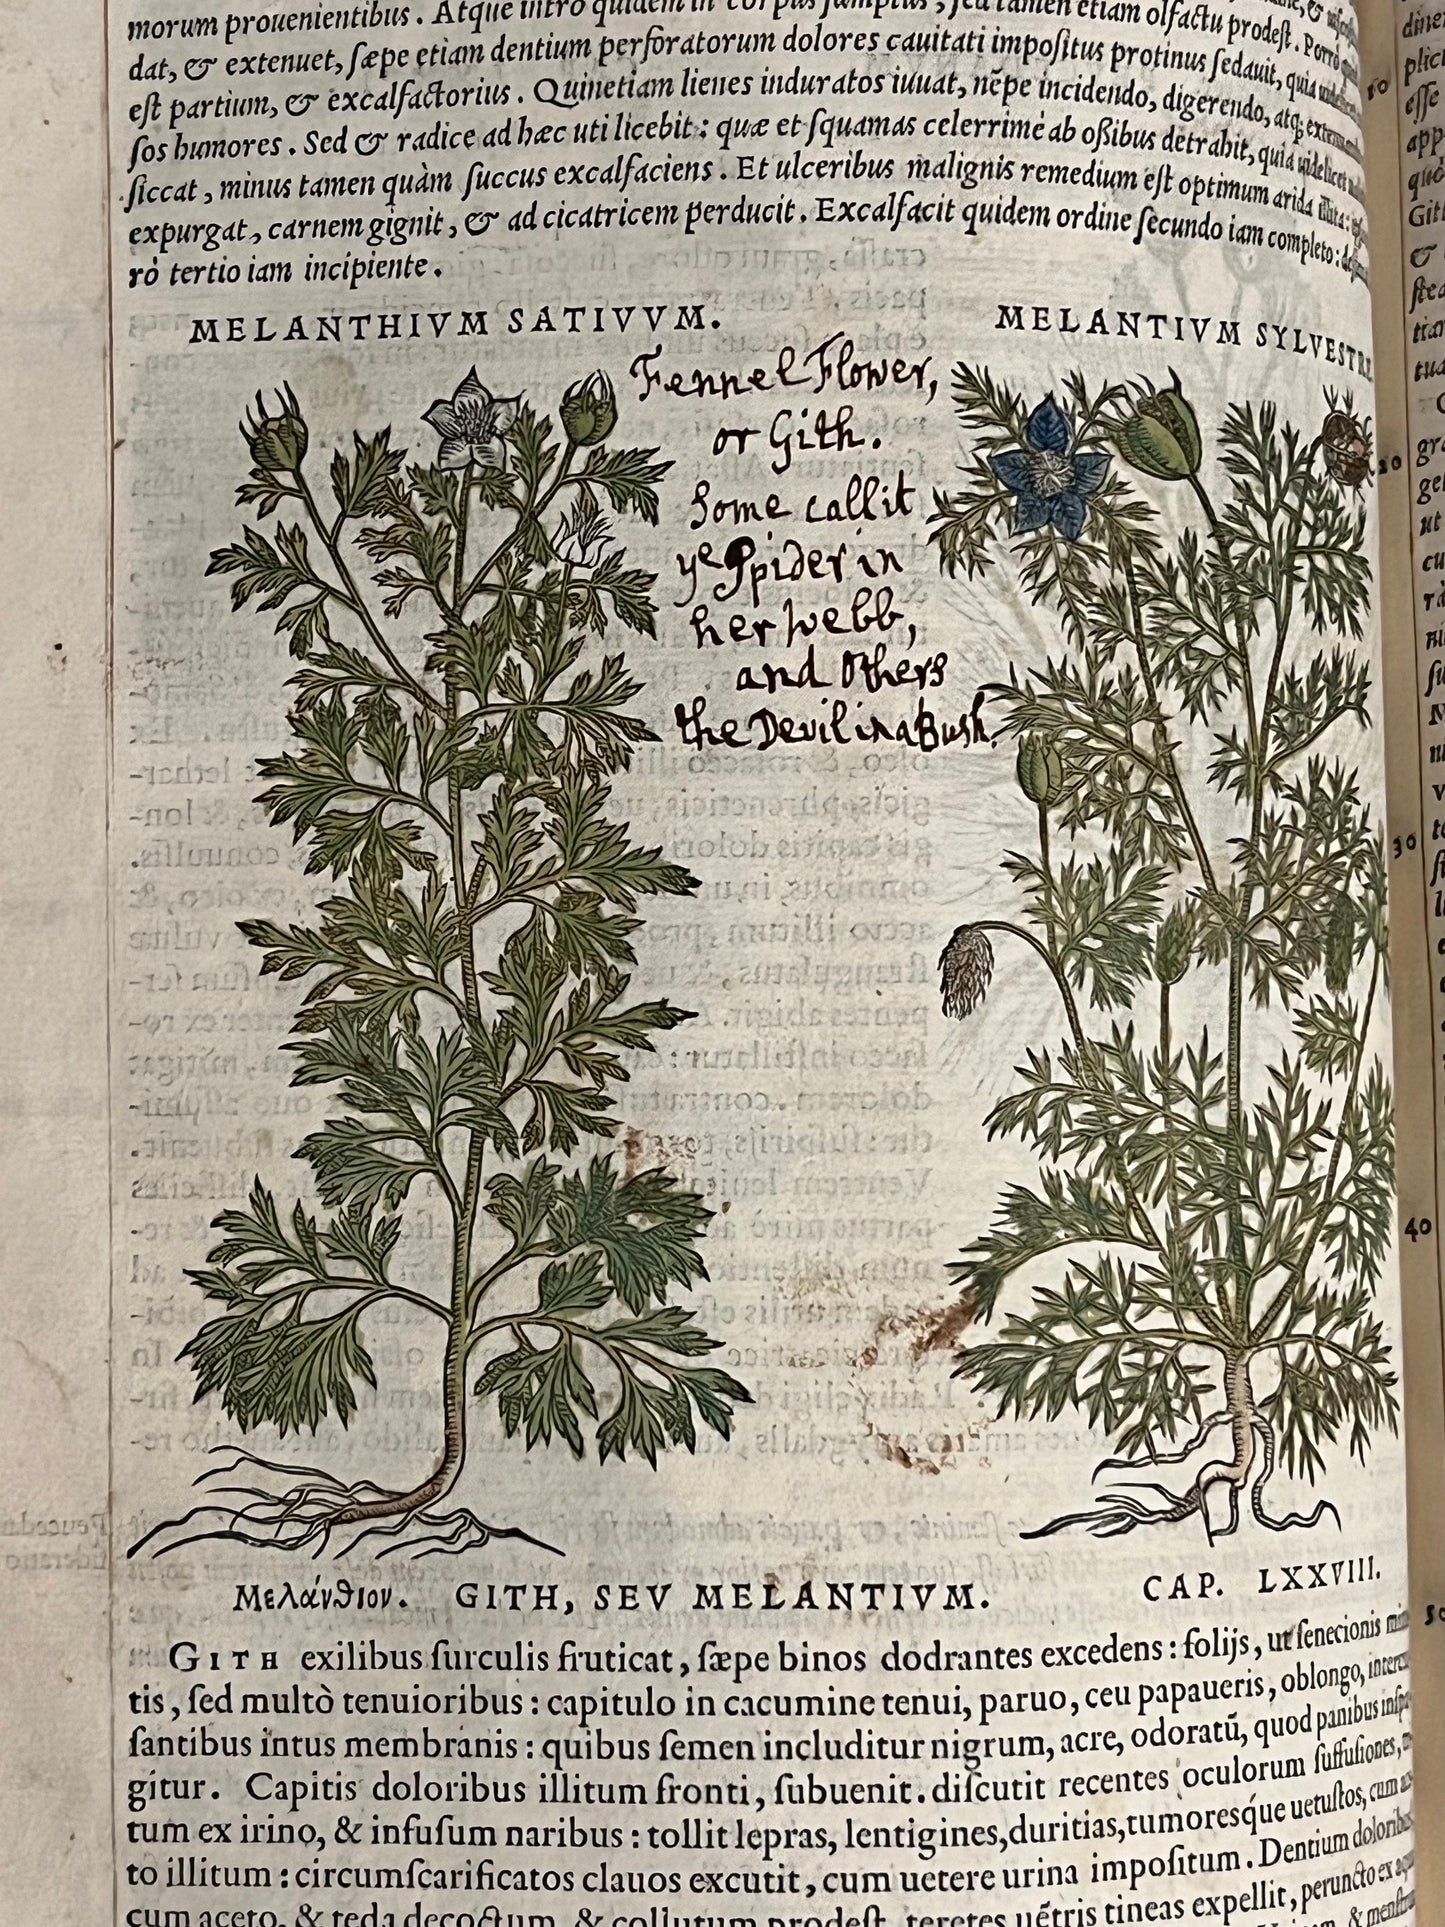 morum prouenientibus. Atque intro quidem in corpus sumptus, sed tamen etiam olfactu prodest. Porrò
dat, & extenuet, sæpe etiam dentium perforatorum dolores cauitati impositus protinus sedauit, quia
est partium, & excalfactorius. Quinetiam lienes induratos iuuat, nēpe incidendo, digerendo, atq;
sos humores. Sed & radice ad hæc uti licebit: quæ et squamas celerrimè ab oßibus detrahit, quia uidelicet
siccat, minus tamen quàm succus excalfaciens. Et ulceribus malignis remedium est optimum arida illita:
expurgat, carnem gignit, & ad cicatricem perducit. Excalfacit quidem ordine secundo iam completo:
rò tertio iam incipiente.
MELANTHIVM SATIVVM.
MELANTIVM SYLVESTRE
Fennel Flower,
or Gith.
Some call it
ye Spider in
her webb,
and Others
the Devil in a Bush.
Μελάνθιον. GITH, SEV MELANTIVM. CAP. LXXVIII.
GITH exilibus surculis fruticat, sæpe binos dodrantes excedens: folijs, ut senecionis
tis, sed multò tenuioribus: capitulo in cacumine tenui, paruo, ceu papaueris, oblongo,
santibus intus membranis: quibus semen includitur nigrum, acre, odoratū, quod panibus
gitur. Capitis doloribus illitum fronti, subuenit. discutit recentes oculorum suffusiones,
tum ex irino, & infusum naribus: tollit lepras, lentigines, duritias, tumoresque uetustos, cum
to illitum: circumscarificatos clauos excutit, cum uetere urina impositum. Dentium doloribus
cum aceto, & teda decoctum, & collutum prodest. teretes uētris tineas expellit, peruncto ex
& menstrua
10
20
30
40
dines
plic
esse
app
quo
Gith
&